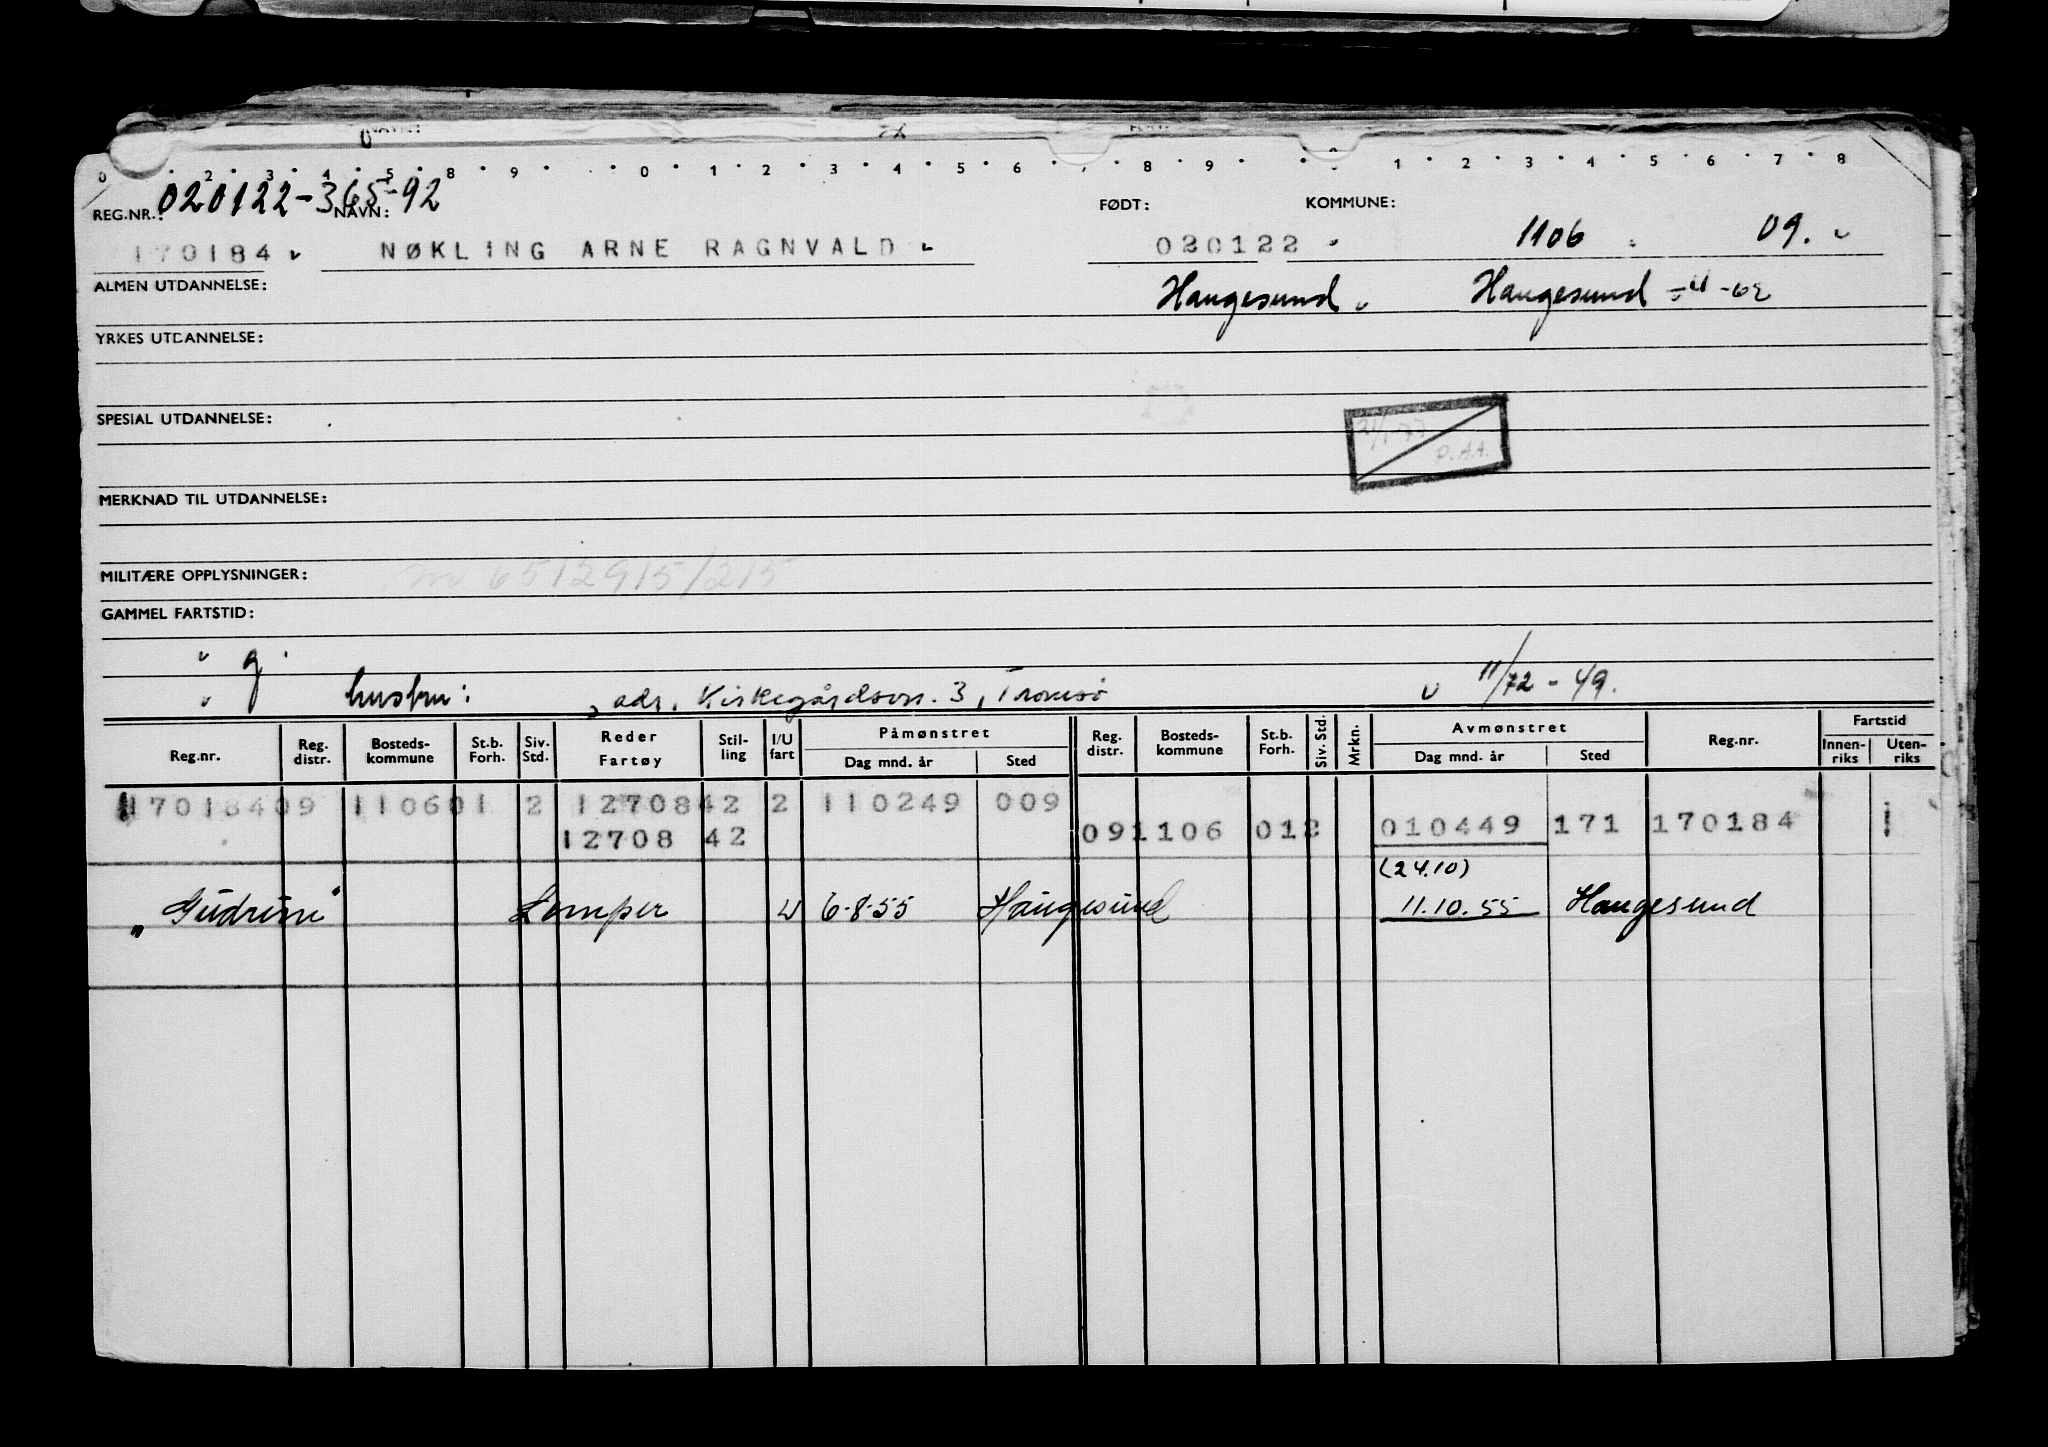 0 2 3 4 5 8 9 0 1 2 3 4 5 6 8 9 1 2 3 4 5 6 7 8
REG.NR.: 020122-365-92 NAVN: FØDT: KOMMUNE:
170184 NØKLING ARNE RAGNVALD 020122 1106 09.
ALMEN UTDANNELSE: Haugesund Haugesund
YRKES UTDANNELSE:
SPESIAL UTDANNELSE:
P.AA.
MERKNAD TIL UTDANNELSE:
MILITÆRE OPPLYSNINGER: 6512915/215
GAMMEL FARTSTID:
g.
hustru: adr. Kirkegårdsvn. 3, Tromsø 11/72-49.
Reg.nr. Reg. distr. Bosteds-kommune St.b. Forh. Siv. Std. Reder Fartøy Stil-ling I/U fart Påmønstret Dag mnd. år Sted Reg. distr. Bosteds-kommune St.b. Forh. Siv. Std. Mrkn. Avmønstret Dag mnd. år Sted Reg.nr. Fartstid Innen-riks Uten-riks
170184 09 1106 01 2 12708 42 2 110249 009
12708 42 09 1106 012 010449 171 170184 1
(24.10)
"Gudrun" Lemper U 6-8-55 Haugesund 11.10.55 Haugesund